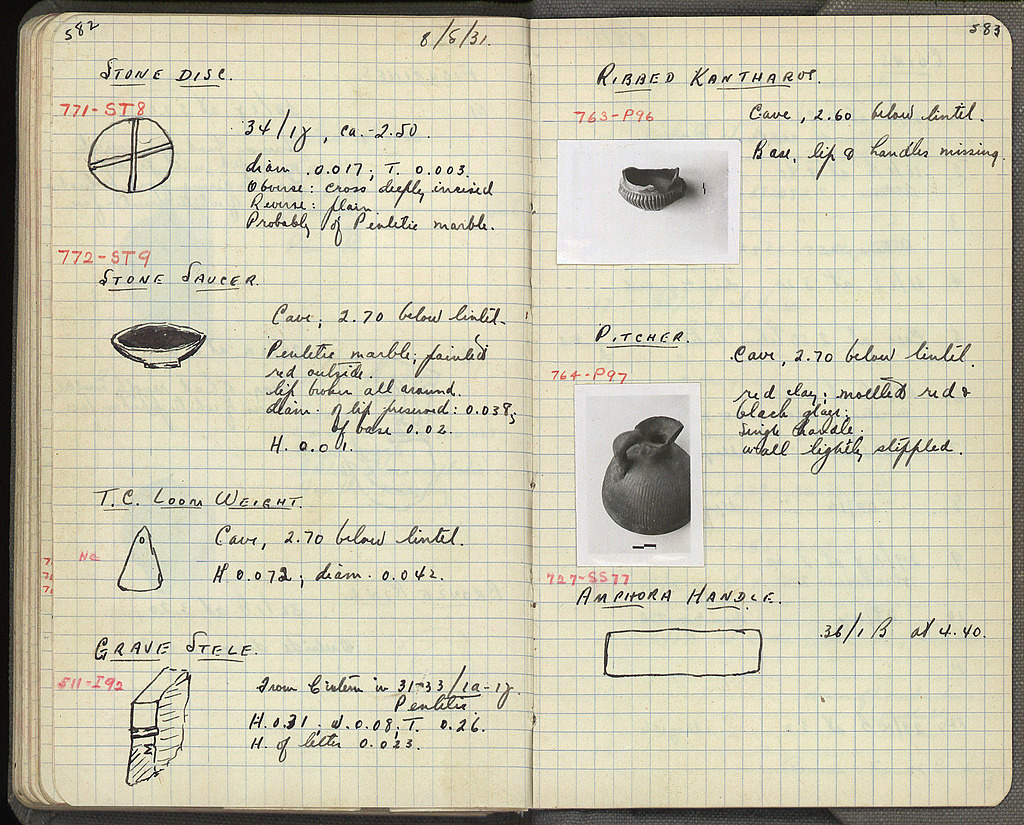 582
8/5/31.
STONE DISC.
771-ST8
34/1z, ca. -2.50.
diam. 0.017; T. 0.003.
Obverse: cross deeply incised
Reverse: plain
Probably of Pentelic marble.
772-ST9
STONE SAUCER.
Cave, 2.70 below lintel.
Pentelic marble; painted
red outside.
lip broken all around.
diam. of lip preserved: 0.038;
of base 0.02.
H. 0.01.
T.C. LOOM WEIGHT.
NC
Cave, 2.70 below lintel.
H 0.072; diam. 0.042.
GRAVE STELE.
511-I92
From Cistern in 31-33/1a-1z
Pentelic.
H. 0.31; W. 0.08; T. 0.26.
H. of letter 0.023.
M
7
7
7
583
RIBBED KANTHAROS.
763-P96
Cave, 2.60 below lintel.
Base, lip & handles missing.
PITCHER.
764-P97
Cave, 2.70 below lintel.
red clay; mottled red &
black glaze;
Single handle.
wall lightly stippled.
727-SS77
AMPHORA HANDLE.
36/1 B at 4.40.